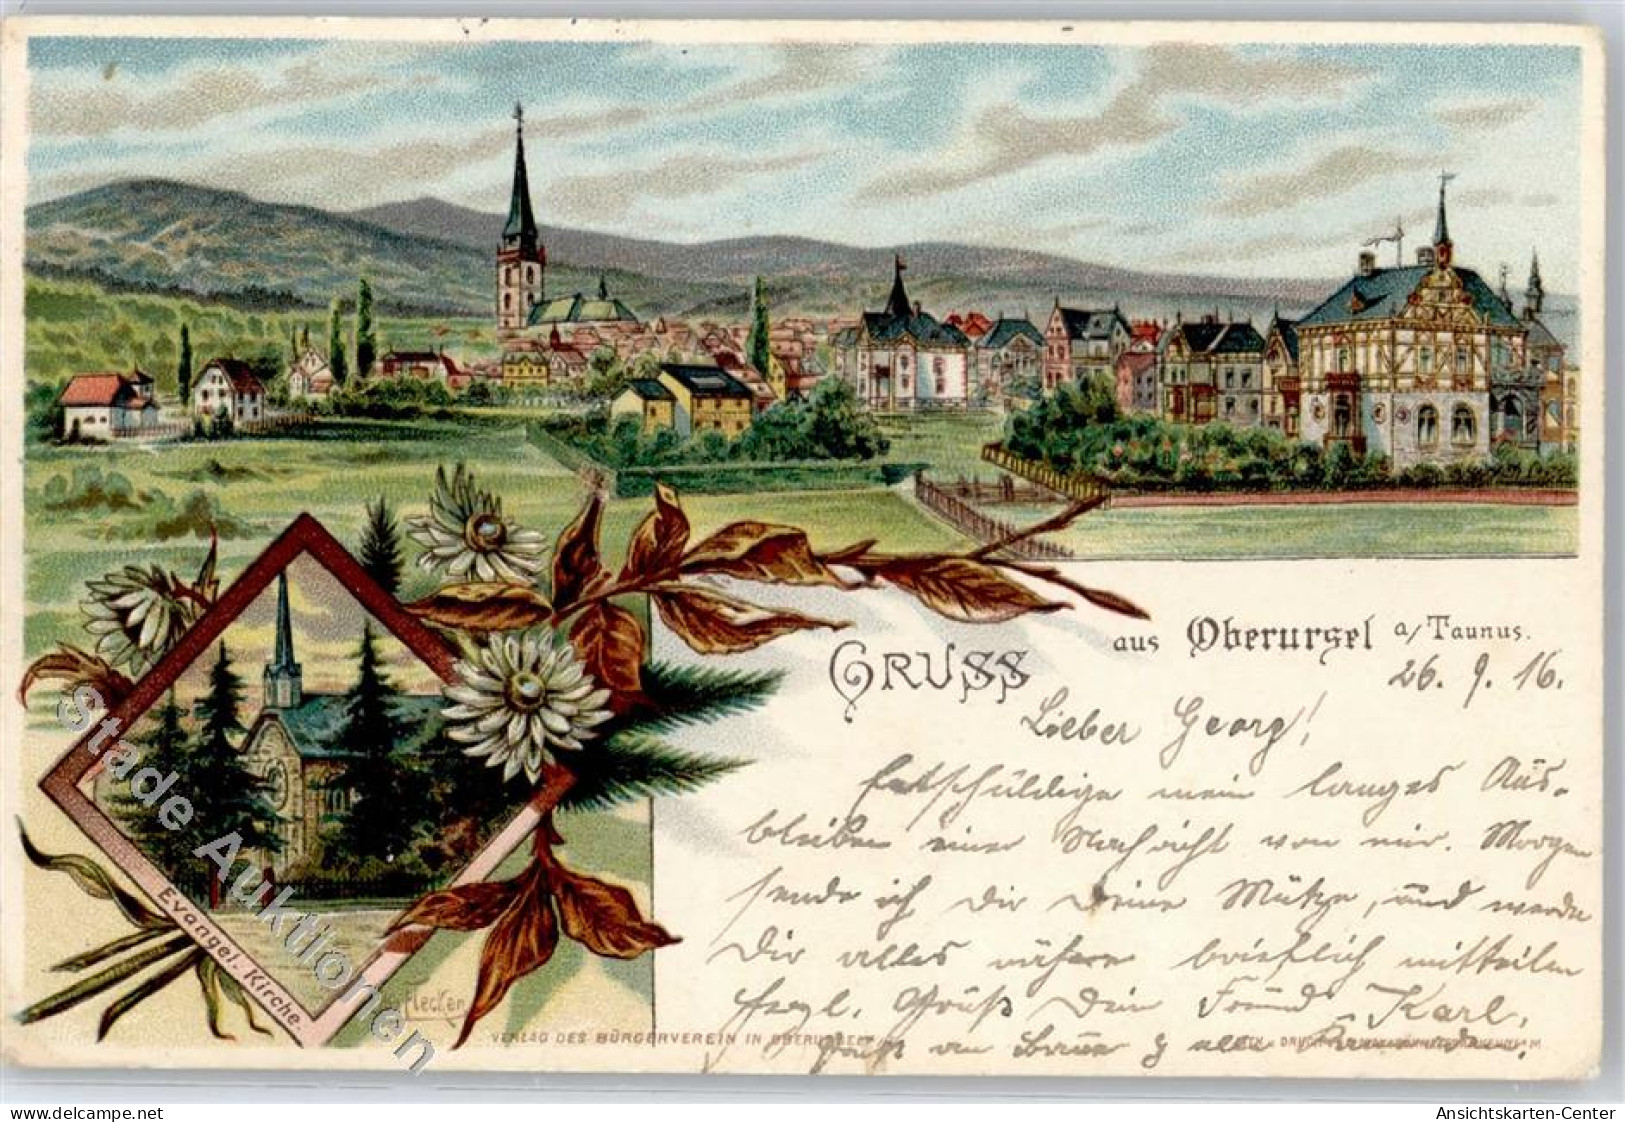 GRUSS aus Oberursel a/Taunus.
26. 9. 16.
Lieber Georg!
Entschuldige mein langes Aus-
bleiben einer Nachricht von mir. Morgen
sende ich Dir Deine Mütze, und werde
Dir alles nähere brieflich mitteilen
Hrzl. Grüß Dein Freund Karl.
Gruß an
Evangel. Kirche.
Flecken
VERLAG DES BÜRGERVEREIN IN OBERURSEL
Stade Auktionen
www.delcampe.net
Ansichtskarten-Center